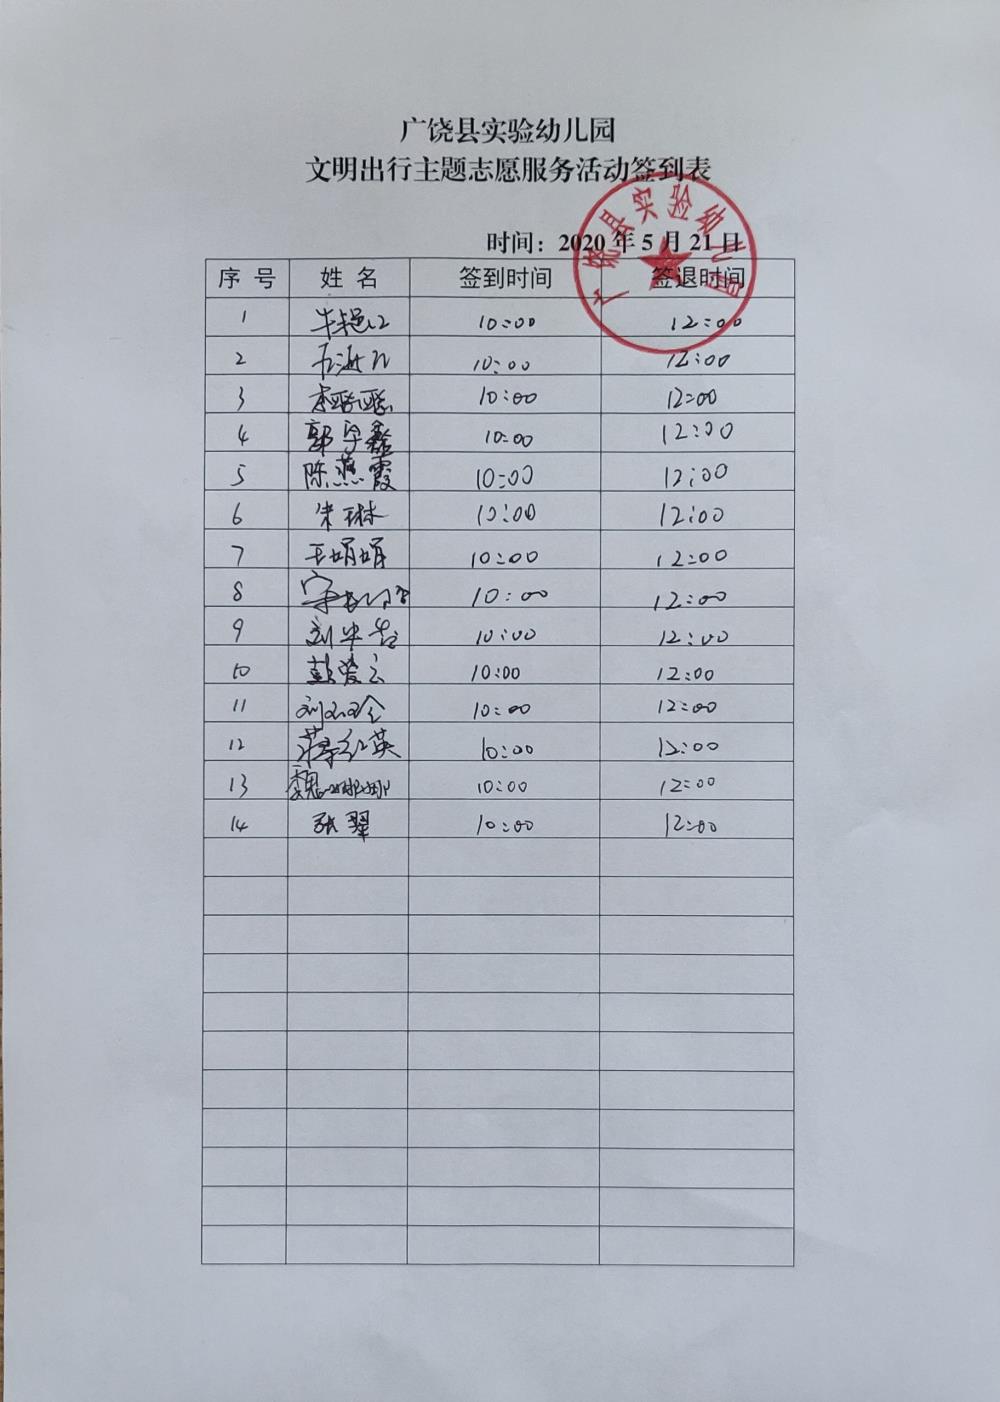 广饶县实验幼儿园
文明出行主题志愿服务活动签到表
广饶县实验幼儿园
时间：2020 年 5 月 21 日
序 号 姓 名 签到时间 签退时间
1 10:00 12:00
2 10:00 12:00
3 10:00 12:00
4 郭宇鑫 10:00 12:00
5 陈燕霞 10:00 12:00
6 朱琳 10:00 12:00
7 王娟娟 10:00 12:00
8 10:00 12:00
9 刘 10:00 12:00
10 彭爱云 10:00 12:00
11 刘 10:00 12:00
12 蒋红英 10:00 12:00
13 魏娜娜 10:00 12:00
14 张翠 10:00 12:00